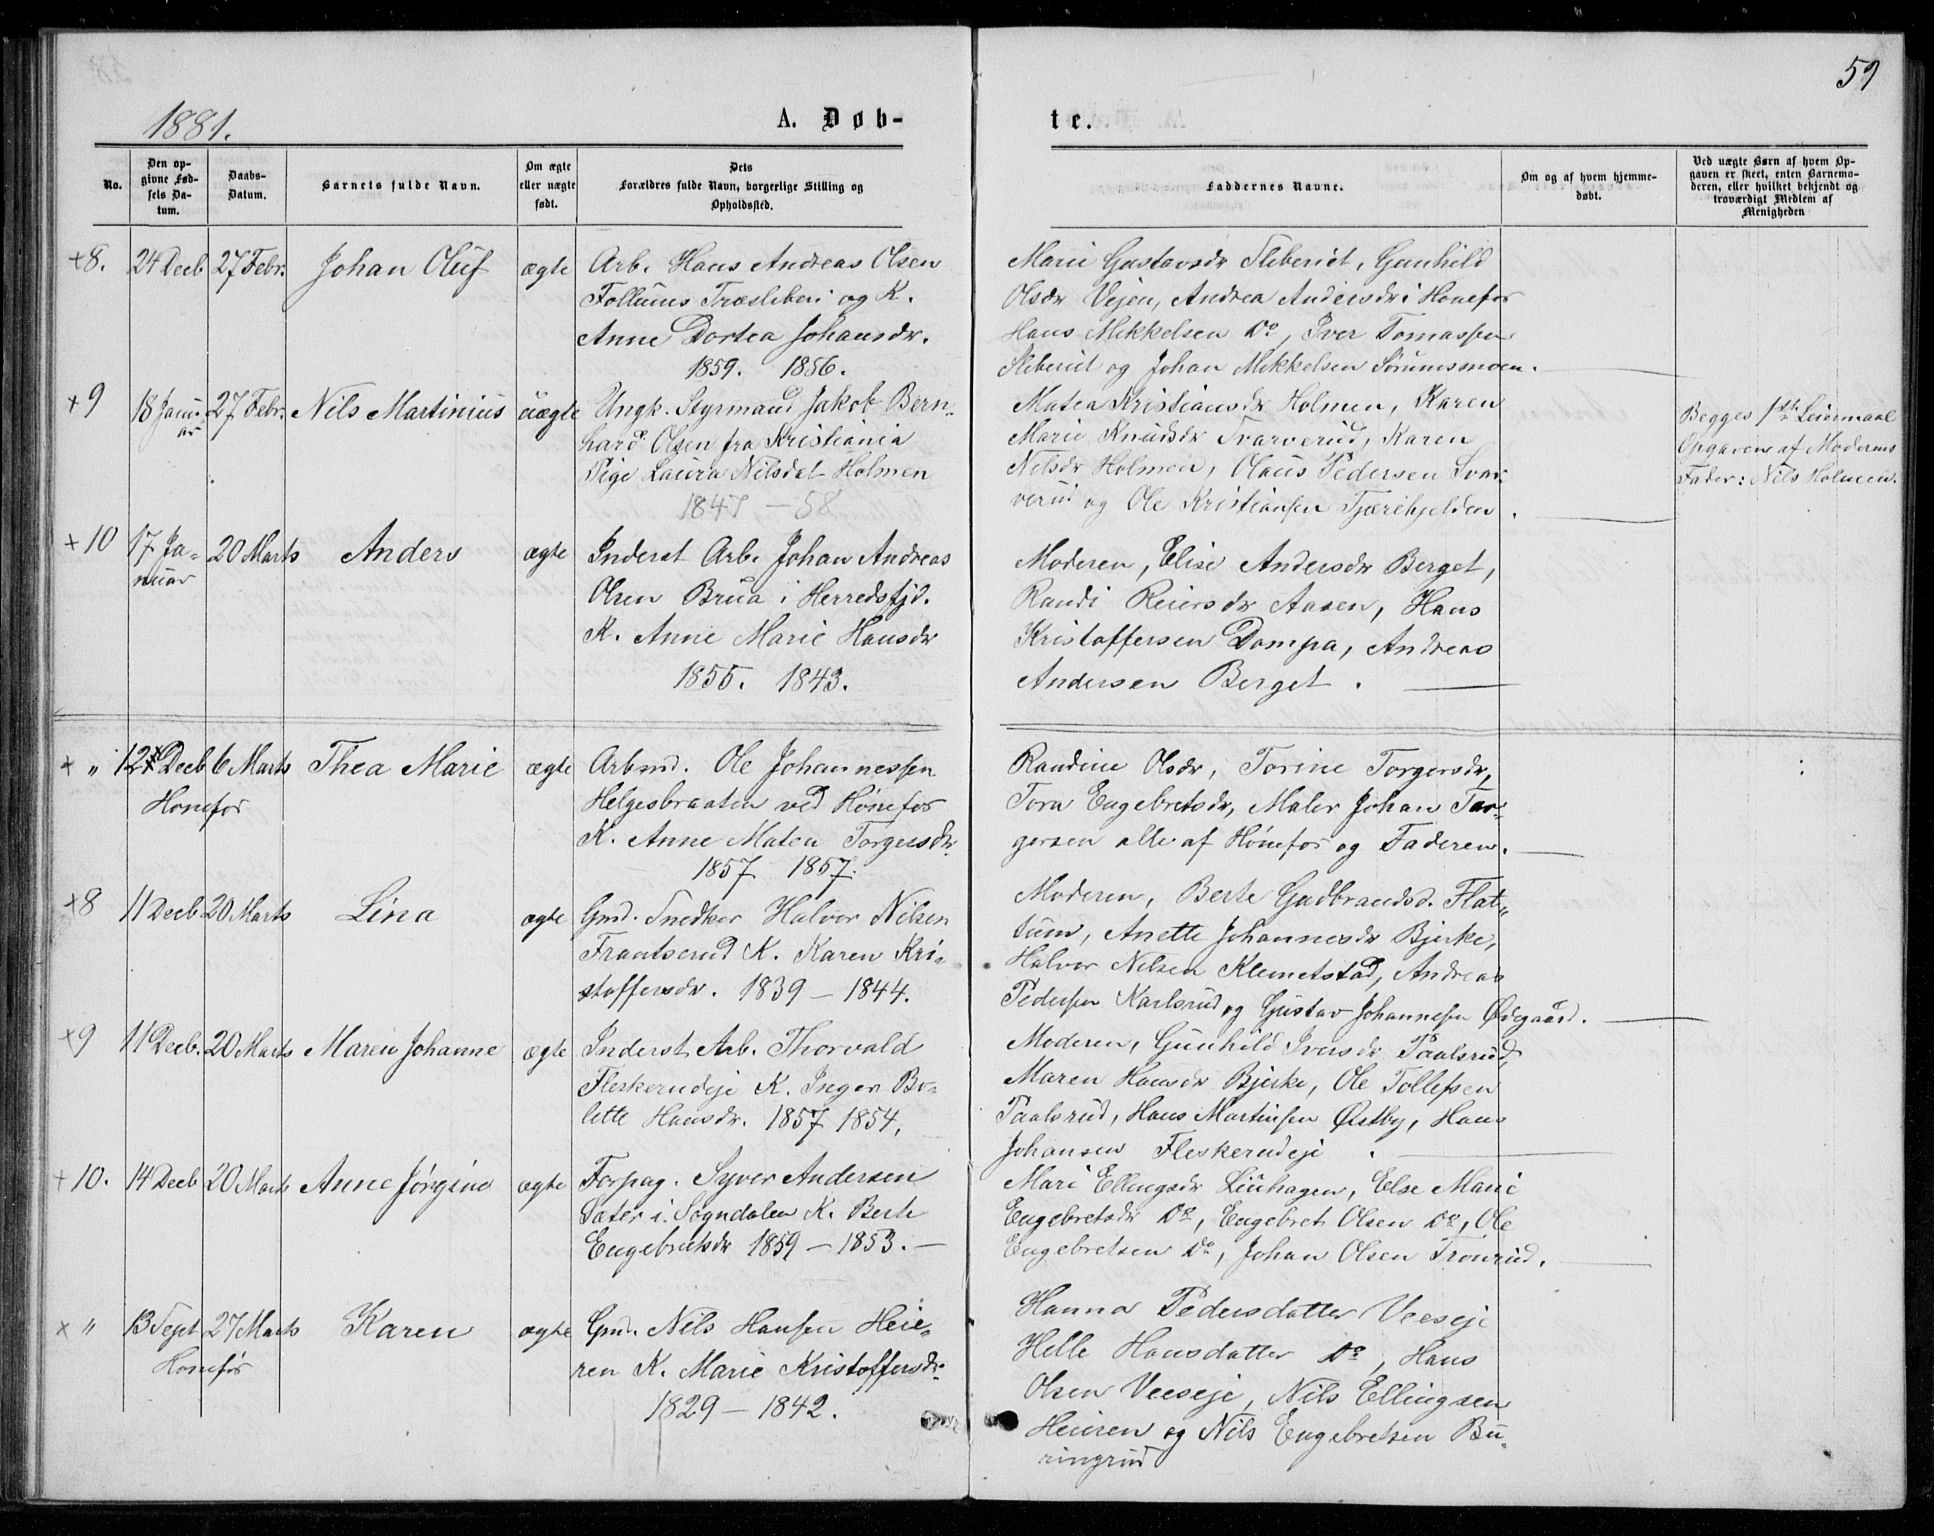 59
1881.
A. Døb-
te.
No.
Den op-
givne Fød-
sels Da-
tum.
Daabs-
Datum.
Barnets fulde Navn.
Om ægte
eller uægte
født.
Dets
Forældres fulde Navn, borgerlige Stilling og
Opholdssted.
Faddernes Navne.
Om og af hvem hjemme-
døbt.
Ved uægte Børn af hvem Op-
gaven er skeet, enten Barnemo-
deren, eller hvilket bekjendt og
troværdigt Medlem af
Menigheden
+8. 24 Decb 27 Febr. Johan Oluf ægte Arb. Hans Andreas Olsen
Follums Træsliberi og K.
Anne Dortea Johansdr.
1859. 1856.
Marie Gustavsdr Sliberiet, Gunhild
Olsdr Vejen, Andrea Andersdr i Hønefos
Hans Mikkelsen Do, Iver Tomassen
Sliberiet og Johan Mikkelsen Sørumsmoen.
+9 18 Janu-
ar 27 Febr. Nils Martinius uægte Ungk. Styrmand Jakob Bern-
hard Olsen fra Kristiania
Pige Laura Nilsdat Holmen
1847 - 58
Matea Kristiansdr Holmen, Karen
Marie Knudsdr Svarverud, Karen
Nilsdr Holmen, Olaus Pedersen Svar-
verud og Ole Kristiansen Tjærehjelden.
Begges 1ste Leiermaal
Opgaven af Moderens
Fader: Nils Holmen.
+10 17 Ja-
nuar 20 Marts Anders ægte Inderst Arb. Johan Andreas
Olsen Brua i Herredsfjd.
K. Anne Marie Hansdr
1855. 1843.
Moderen, Elise Andersdr Berget,
Randi Reiersdr Aasen, Hans
Kristoffersen Dompa, Andreas
Andersen Berget.
+ " 12 Decb 6 Marts Thea Marie ægte Arbmd. Ole Johannessen
Hønefos
Helgesbraaten ved Hønefos
K. Anne Matea Torgersdr
1857 1857.
Randine Olsdr, Torine Torgersdr,
Tora Engebretsdr, Maler Johan Tor-
gersen alle af Hønefos og Faderen.
+8 11 Decb 20 Marts Lina ægte Gmd. Snedker Halvor Nilsen
Frantserud K. Karen Kri-
stoffersdr. 1839 - 1844.
Moderen, Berte Gudbrandsd. Flat-
tum, Anette Johannesdr Bjerke,
Halvor Nelsen Klemetstad, Andreas
Pedersen Karlsrud og Gustav Johannesen Ødegaard.
+9 11 Decb. 20 Marts Maren Johanne ægte Inderst Arb. Thorvald
Fleskerudeje K. Inger Bo-
lette Hansdr. 1857 1854.
Moderen, Gunhild Iversdr Paalsrud,
Maren Hansdr Bjerke, Ole Tollefsen
Paalsrud, Hans Martinsen Østby, Hans
Johansen Fleskerudeje.
+10. 14 Decb 20 Marts Anne Jørgine ægte Forpag. Syver Andersen
Sæter i Sogndalen K. Berte
Engebretsdr 1859 - 1853. -
Mari Ellingsdr Linhagen, Else Marie
Engebretsdr Do, Engebret Olsen Do, Ole
Engebretsen Do, Johan Olsen Tronrud.
+ " 13 Sept 27 Marts Karen ægte Gmd. Nils Hansen Heie-
Hønefos
ren K. Marie Kristoffersdr
1829 - 1842.
Hanna Pedersdatter Veeseje
Helle Hansdatter Do, Hans
Olsen Veeseje, Nils Ellingsen
Heieren og Nils Engebretsen Bu-
ringrud